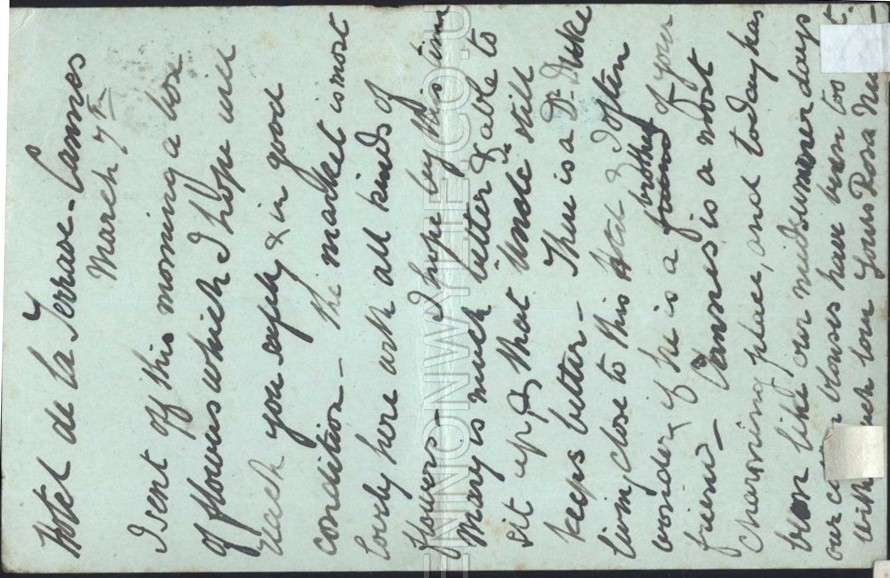 Hotel de la Terrasse - Cannes
March 7th
I sent off this morning a box
of flowers which I hope will
reach you safely & in good
condition - the market is most
lovely here with all kinds of
flowers - I hope by this time
Mary is much better & able to
sit up & that Uncle still
keeps better - There is a Dr. Duke
living close to this Hotel & I often
wonder if he is a friend brother of your
friend - Cannes is a most
charming place, and today has
been like our midsummer days
our blouses have been too
with much love Yours Rosa